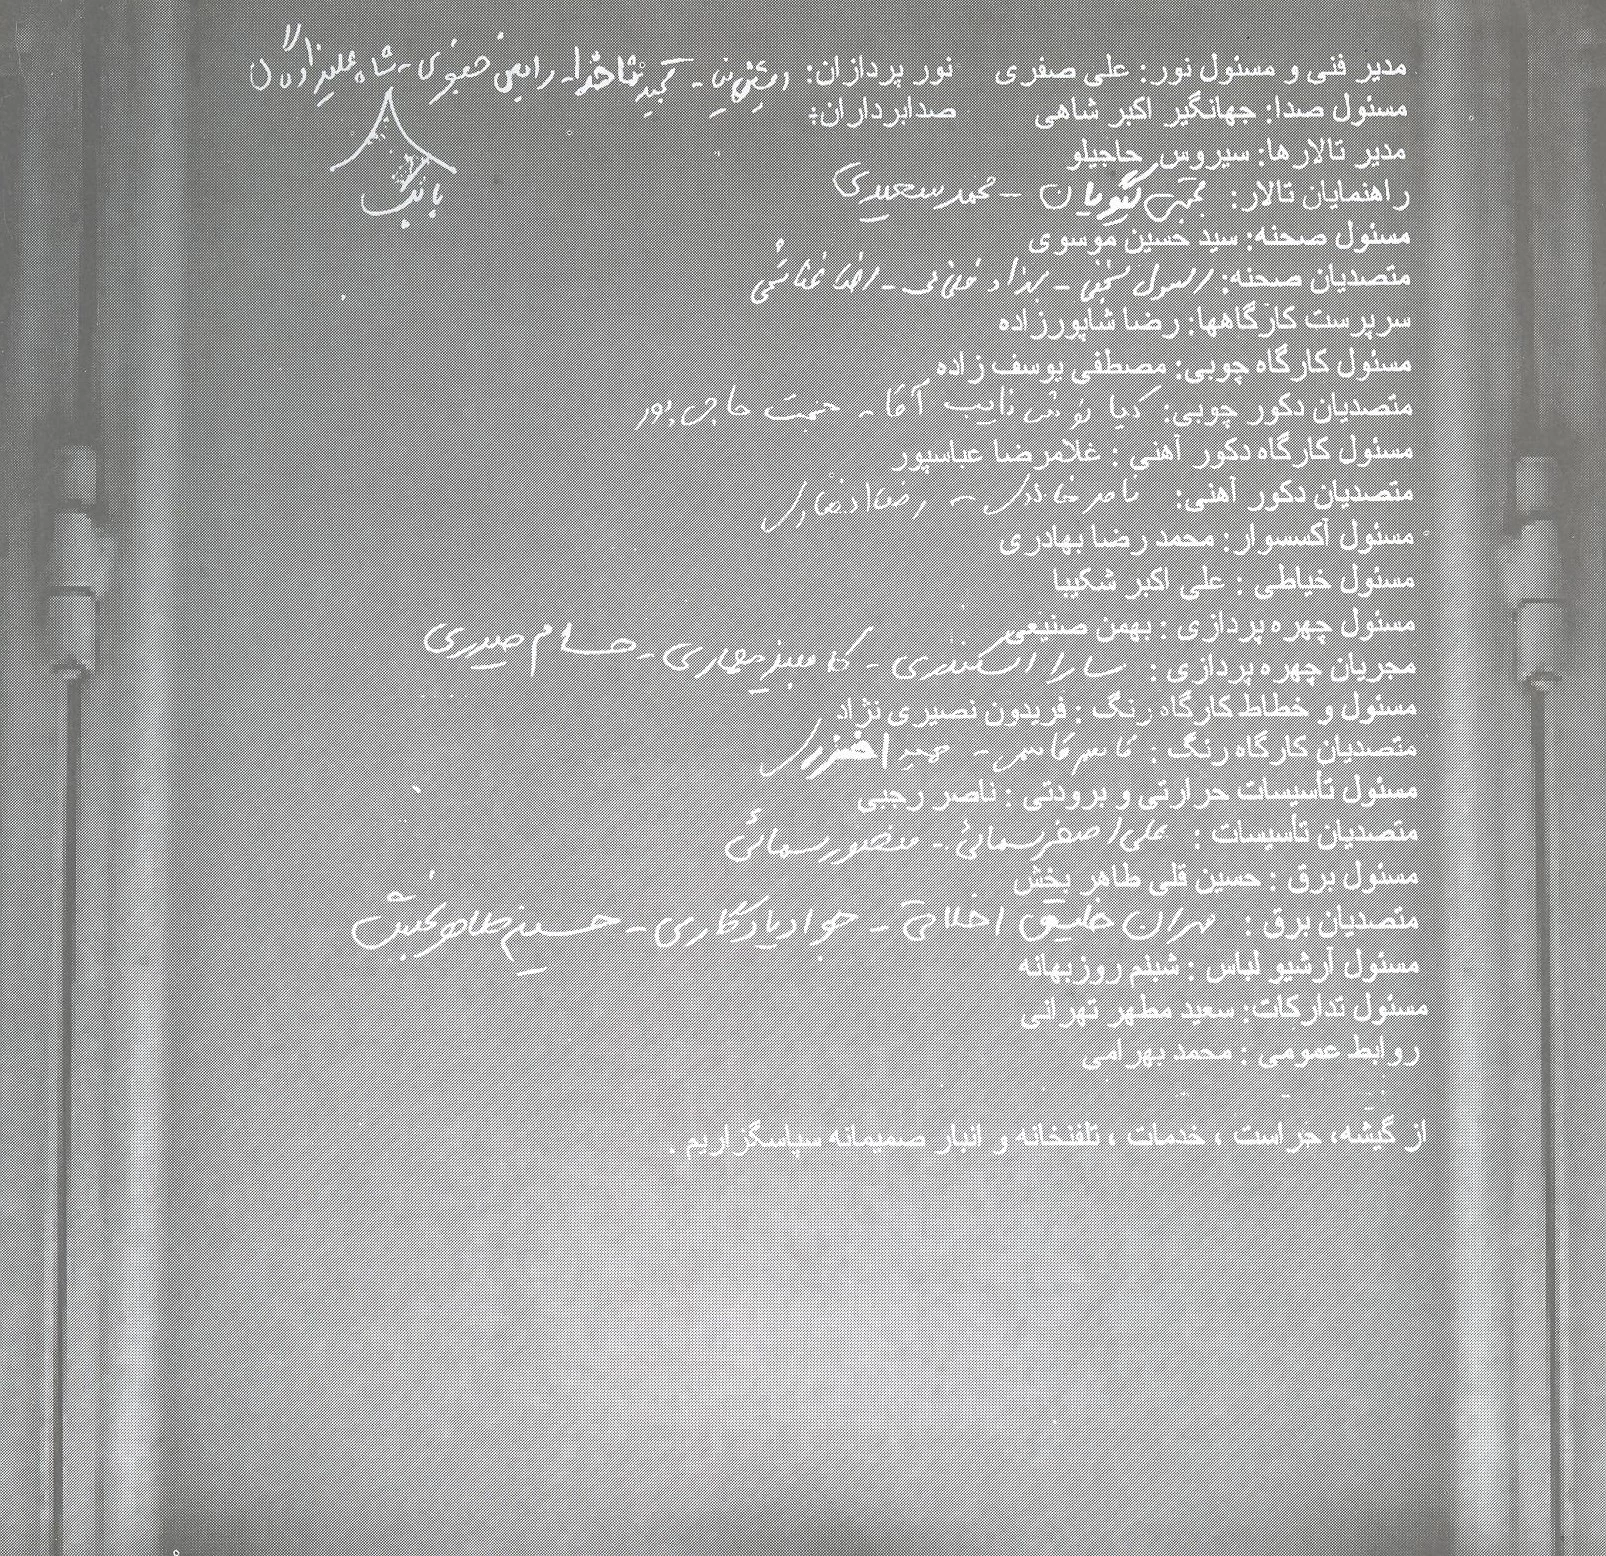 مدیر فنی و مسئول نور: علی صفری نور پردازان:
مسئول صدا: جهانگیر اکبر شاهی صدابرداران:
بانک
مدیر تالارها: سیروس حاجیلو
راهنمایان تالار: مجتبی گویان - محمد سعیدی
مسئول صحنه: سید حسین موسوی
متصدیان صحنه: رسول - بهزاد - رضا
سرپرست کارگاهها: رضا شاپورزاده
مسئول کارگاه چوبی: مصطفی یوسف زاده
متصدیان دکور چوبی: کیا نوش نایب آقا - حاجی پور
مسئول کارگاه دکور آهنی : غلامرضا عباسپور
متصدیان دکور آهنی: ناصر - رضا
مسئول آکسسوار: محمد رضا بهادری
مسئول خیاطی : علی اکبر شکیبا
مسئول چهره پردازی : بهمن صنیعی
مجریان چهره پردازی : سارا اسکندری - کامبیز معماری - حسام حیدری
مسئول و خطاط کارگاه رنگ : فریدون نصیری نژاد
متصدیان کارگاه رنگ : قاسم قاسمی - حمید
مسئول تأسیسات حرارتی و برودتی : ناصر رجبی
متصدیان تأسیسات : علی اصغر سمائی - منصور سمائی
مسئول برق : حسین قلی طاهر بخش
متصدیان برق : مهران خلیق اخلاقی - جواد یادگاری - حسین طاهر بخش
مسئول آرشیو لباس : شبنم روزبهانه
مسئول تدارکات: سعید مطهر تهرانی
روابط عمومی : محمد بهرامی
از گیشه، حراست ، خدمات ، تلفنخانه و انبار صمیمانه سپاسگزاریم .